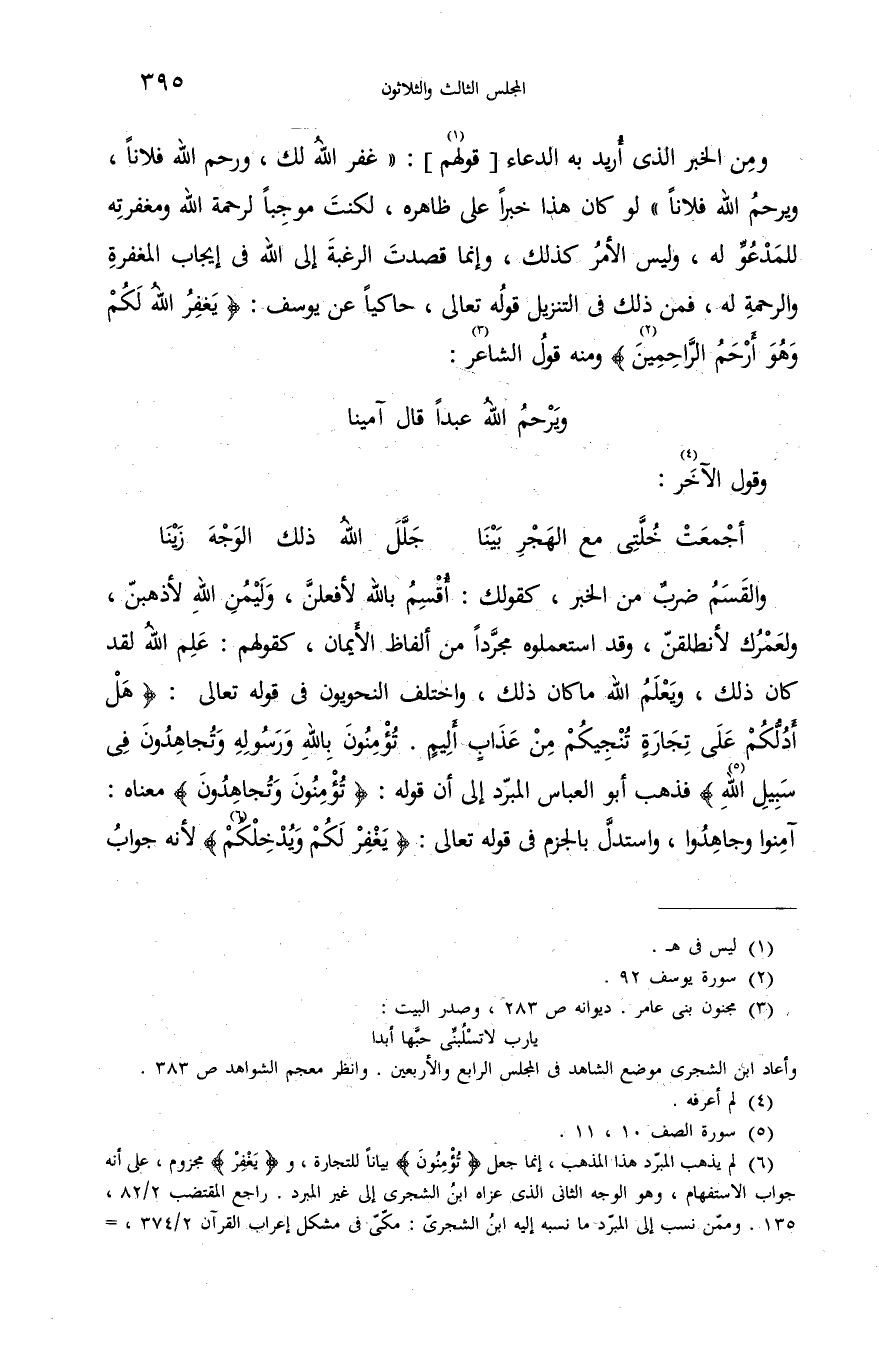 المجلس الثالث والثلاثون ٣٩٥
ومِن الخبر الذى أُريد به الدعاء [ قولهم(١) ] : « غفر اللهُ لك ، ورحم الله فلاناً ،
ويرحمُ الله فلاناً » لو كان هذا خبراً على ظاهره ، لكنتَ موجِباً لرحمة الله ومغفرتِه
للمَدْعُوِّ له ، وليس الأمرُ كذلك ، وإنما قصدتَ الرغبةَ إلى الله فى إيجاب المغفرةِ
والرحمةِ له ، فمن ذلك فى التنزيل قولُه تعالى ، حاكياً عن يوسف : ﴿ يَغفِرُ اللهُ لَكُمْ
وَهُوَ أَرْحَمُ الرَّاحِمِينَ ﴾(٢) ومنه قولُ الشاعر(٣) :
ويَرْحمُ اللهُ عبداً قال آمينا
وقول الآخَر(٤) :
أجْمعَتْ خُلَّتِى مع الهَجْرِ بَيْنَا جَلَّلَ اللهُ ذلك الوَجْهَ زَيْنَا
والقَسَمُ ضربٌ من الخبر ، كقولك : أُقْسِمُ بالله لأفعلنَّ ، وَلَيْمُنِ اللهِ لأذهبنّ ،
ولعَمْرُك لأنطلقنّ ، وقد استعملوه مجرَّداً من ألفاظ الأَيمان ، كقولهم : عَلِم اللهُ لقد
كان ذلك ، ويَعْلَمُ الله ماكان ذلك ، واختلف النحويون فى قوله تعالى : ﴿ هَلْ
أَدُلُّكُمْ عَلَى تِجَارَةٍ تُنْجِيكُمْ مِنْ عَذَابٍ أَلِيمٍ . تُؤْمِنُونَ بِاللهِ وَرَسُولِهِ وَتُجاهِدُونَ فِى
سَبِيلِ اللهِ ﴾(٥) فذهب أبو العباس المبرّد إلى أن قوله : ﴿ تُؤْمِنُونَ وَتُجاهِدُونَ ﴾ معناه :
آمِنوا وجاهِدُوا ، واستدلَّ بالجزم فى قوله تعالى : ﴿ يَغْفِرْ لَكُمْ وَيُدْخِلْكُمْ ﴾(٦) لأنه جوابُ
(١) ليس فى هـ .
(٢) سورة يوسف ٩٢ .
(٣) مجنون بنى عامر . ديوانه ص ٢٨٣ ، وصدر البيت :
يارب لاتسْلُبنِّى حبَّها أبدا
وأعاد ابن الشجرى موضع الشاهد فى المجلس الرابع والأربعين . وانظر معجم الشواهد ص ٣٨٣ .
(٤) لم أعرفه .
(٥) سورة الصف ١٠ ، ١١ .
(٦) لم يذهب المبرّد هذا المذهب ، إنما جعل ﴿ تُؤْمِنُونَ ﴾ بياناً للتجارة ، و ﴿ يَغْفِرْ ﴾ مجزوم ، على أنه
جواب الاستفهام ، وهو الوجه الثانى الذى عزاه ابنُ الشجرى إلى غير المبرد . راجع المقتضب ٨٢/٢ ،
١٣٥ . وممّن نسب إلى المبرّد ما نسبه إليه ابنُ الشجرىّ : مكّىّ فى مشكل إعراب القرآن ٣٧٤/٢ ، =